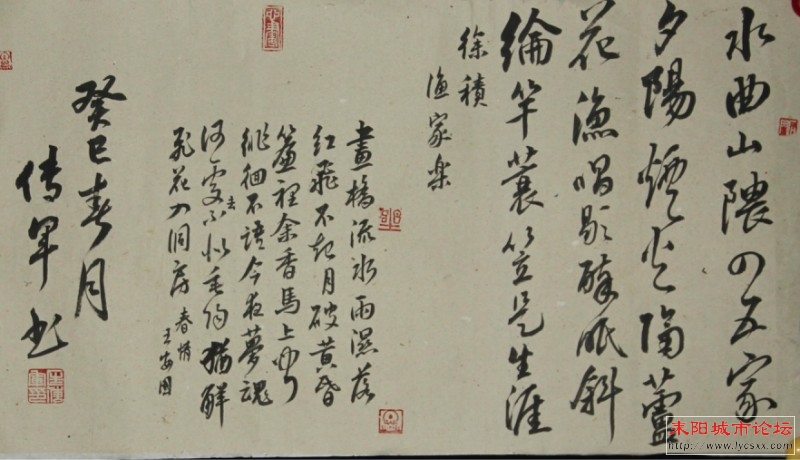 水曲山隈四五家
夕陽煙火隔蘆
花漁唱歇醉眠斜
綸竿蓑笠是生涯
徐積
漁家楽
畫橋流水雨濕落
紅飛不起月破黄昏
簾裡余香馬上聞
徘徊不語今夜夢魂
何處去不似垂楊猶解
飛花入洞房 春情
王安国
癸巳春月
傳軍书
耒阳城市论坛
http://www.lycsxx.com